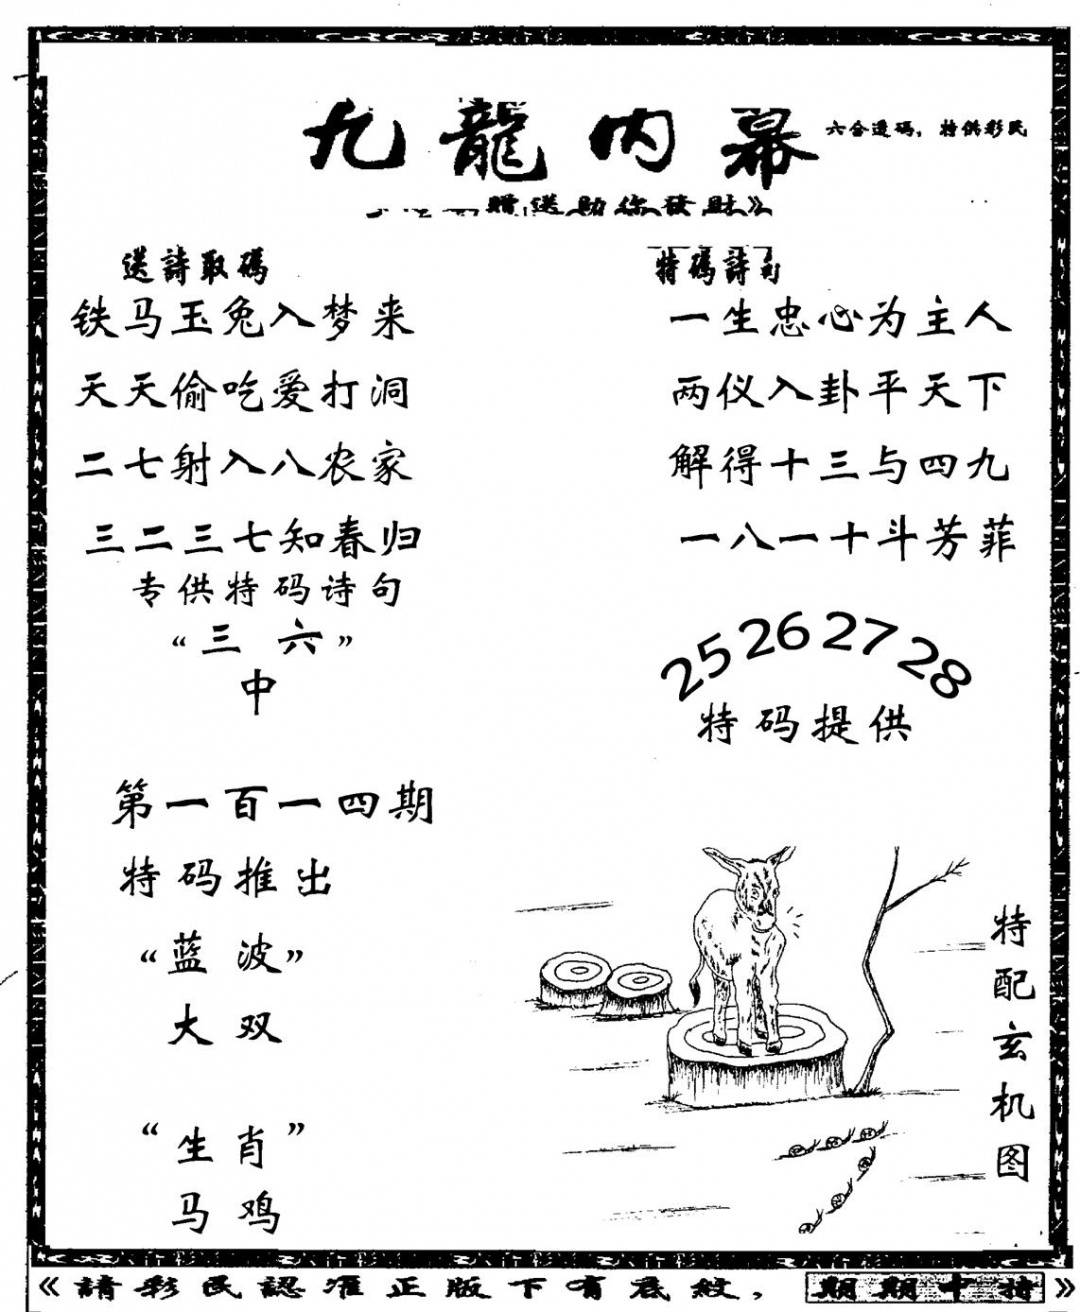 九龍内幕
六合透碼，特供彩民
贈送助你發財》
送詩取碼
铁马玉兔入梦来
天天偷吃爱打洞
二七射入八农家
三二三七知春归
专供特码诗句
“三六”
中
特碼詩句
一生忠心为主人
两仪入卦平天下
解得十三与四九
一八一十斗芳菲
25 26 27 28
特码提供
第一百一四期
特码推出
“蓝波”
大双
“生肖”
马鸡
特配玄机图
《請彩民認准正版下有底紋，期期中特》